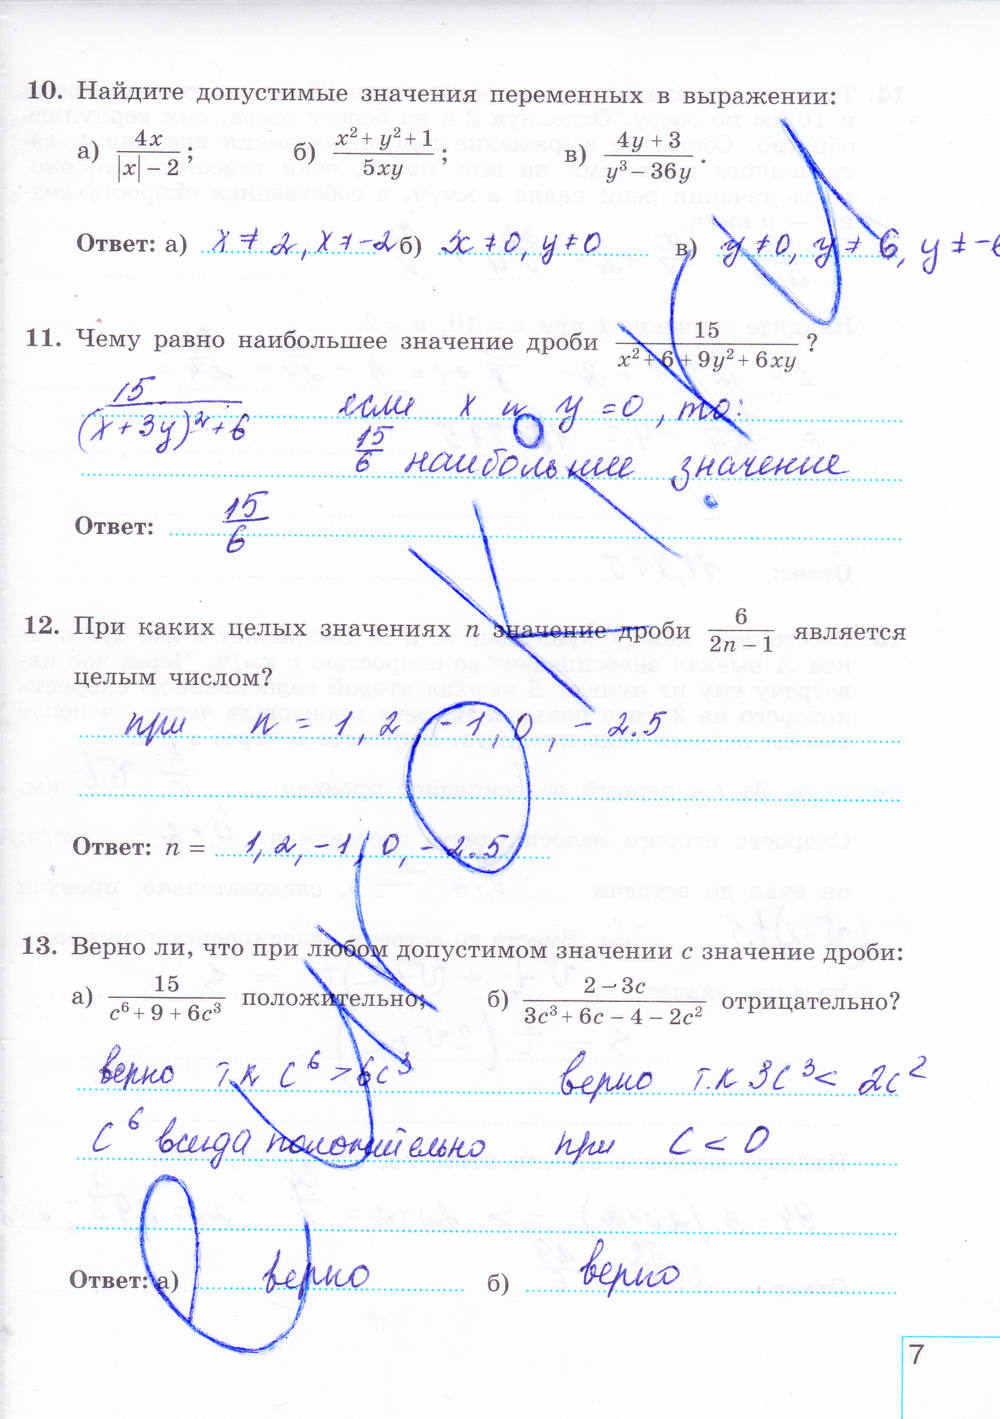 10. Найдите допустимые значения переменных в выражении:
а) 4x / |x| − 2 ; б) x² + y² + 1 / 5xy ; в) 4y + 3 / y³ − 36y .
Ответ: а) x ≠ 2, x ≠ -2 б) x ≠ 0, y ≠ 0 в) y ≠ 0, y ≠ 6, y ≠ -6
11. Чему равно наибольшее значение дроби 15 / x² + 6 + 9y² + 6xy ?
15 / (x + 3y)² + 6 если x и y = 0, то:
15/6 наибольшее значение
Ответ: 15/6
12. При каких целых значениях n значение дроби 6 / 2n − 1 является
целым числом?
при n = 1, 2, -1, 0, - 2.5
Ответ: n = 1, 2, -1, 0, - 2.5
13. Верно ли, что при любом допустимом значении c значение дроби:
а) 15 / c⁶ + 9 + 6c³ положительно; б) 2 − 3c / 3c³ + 6c − 4 − 2c² отрицательно?
верно т.к c⁶ > 6c³ верно т.к 3c³ < 2c²
c⁶ всегда положительно при c < 0
Ответ: а) верно б) верно
7